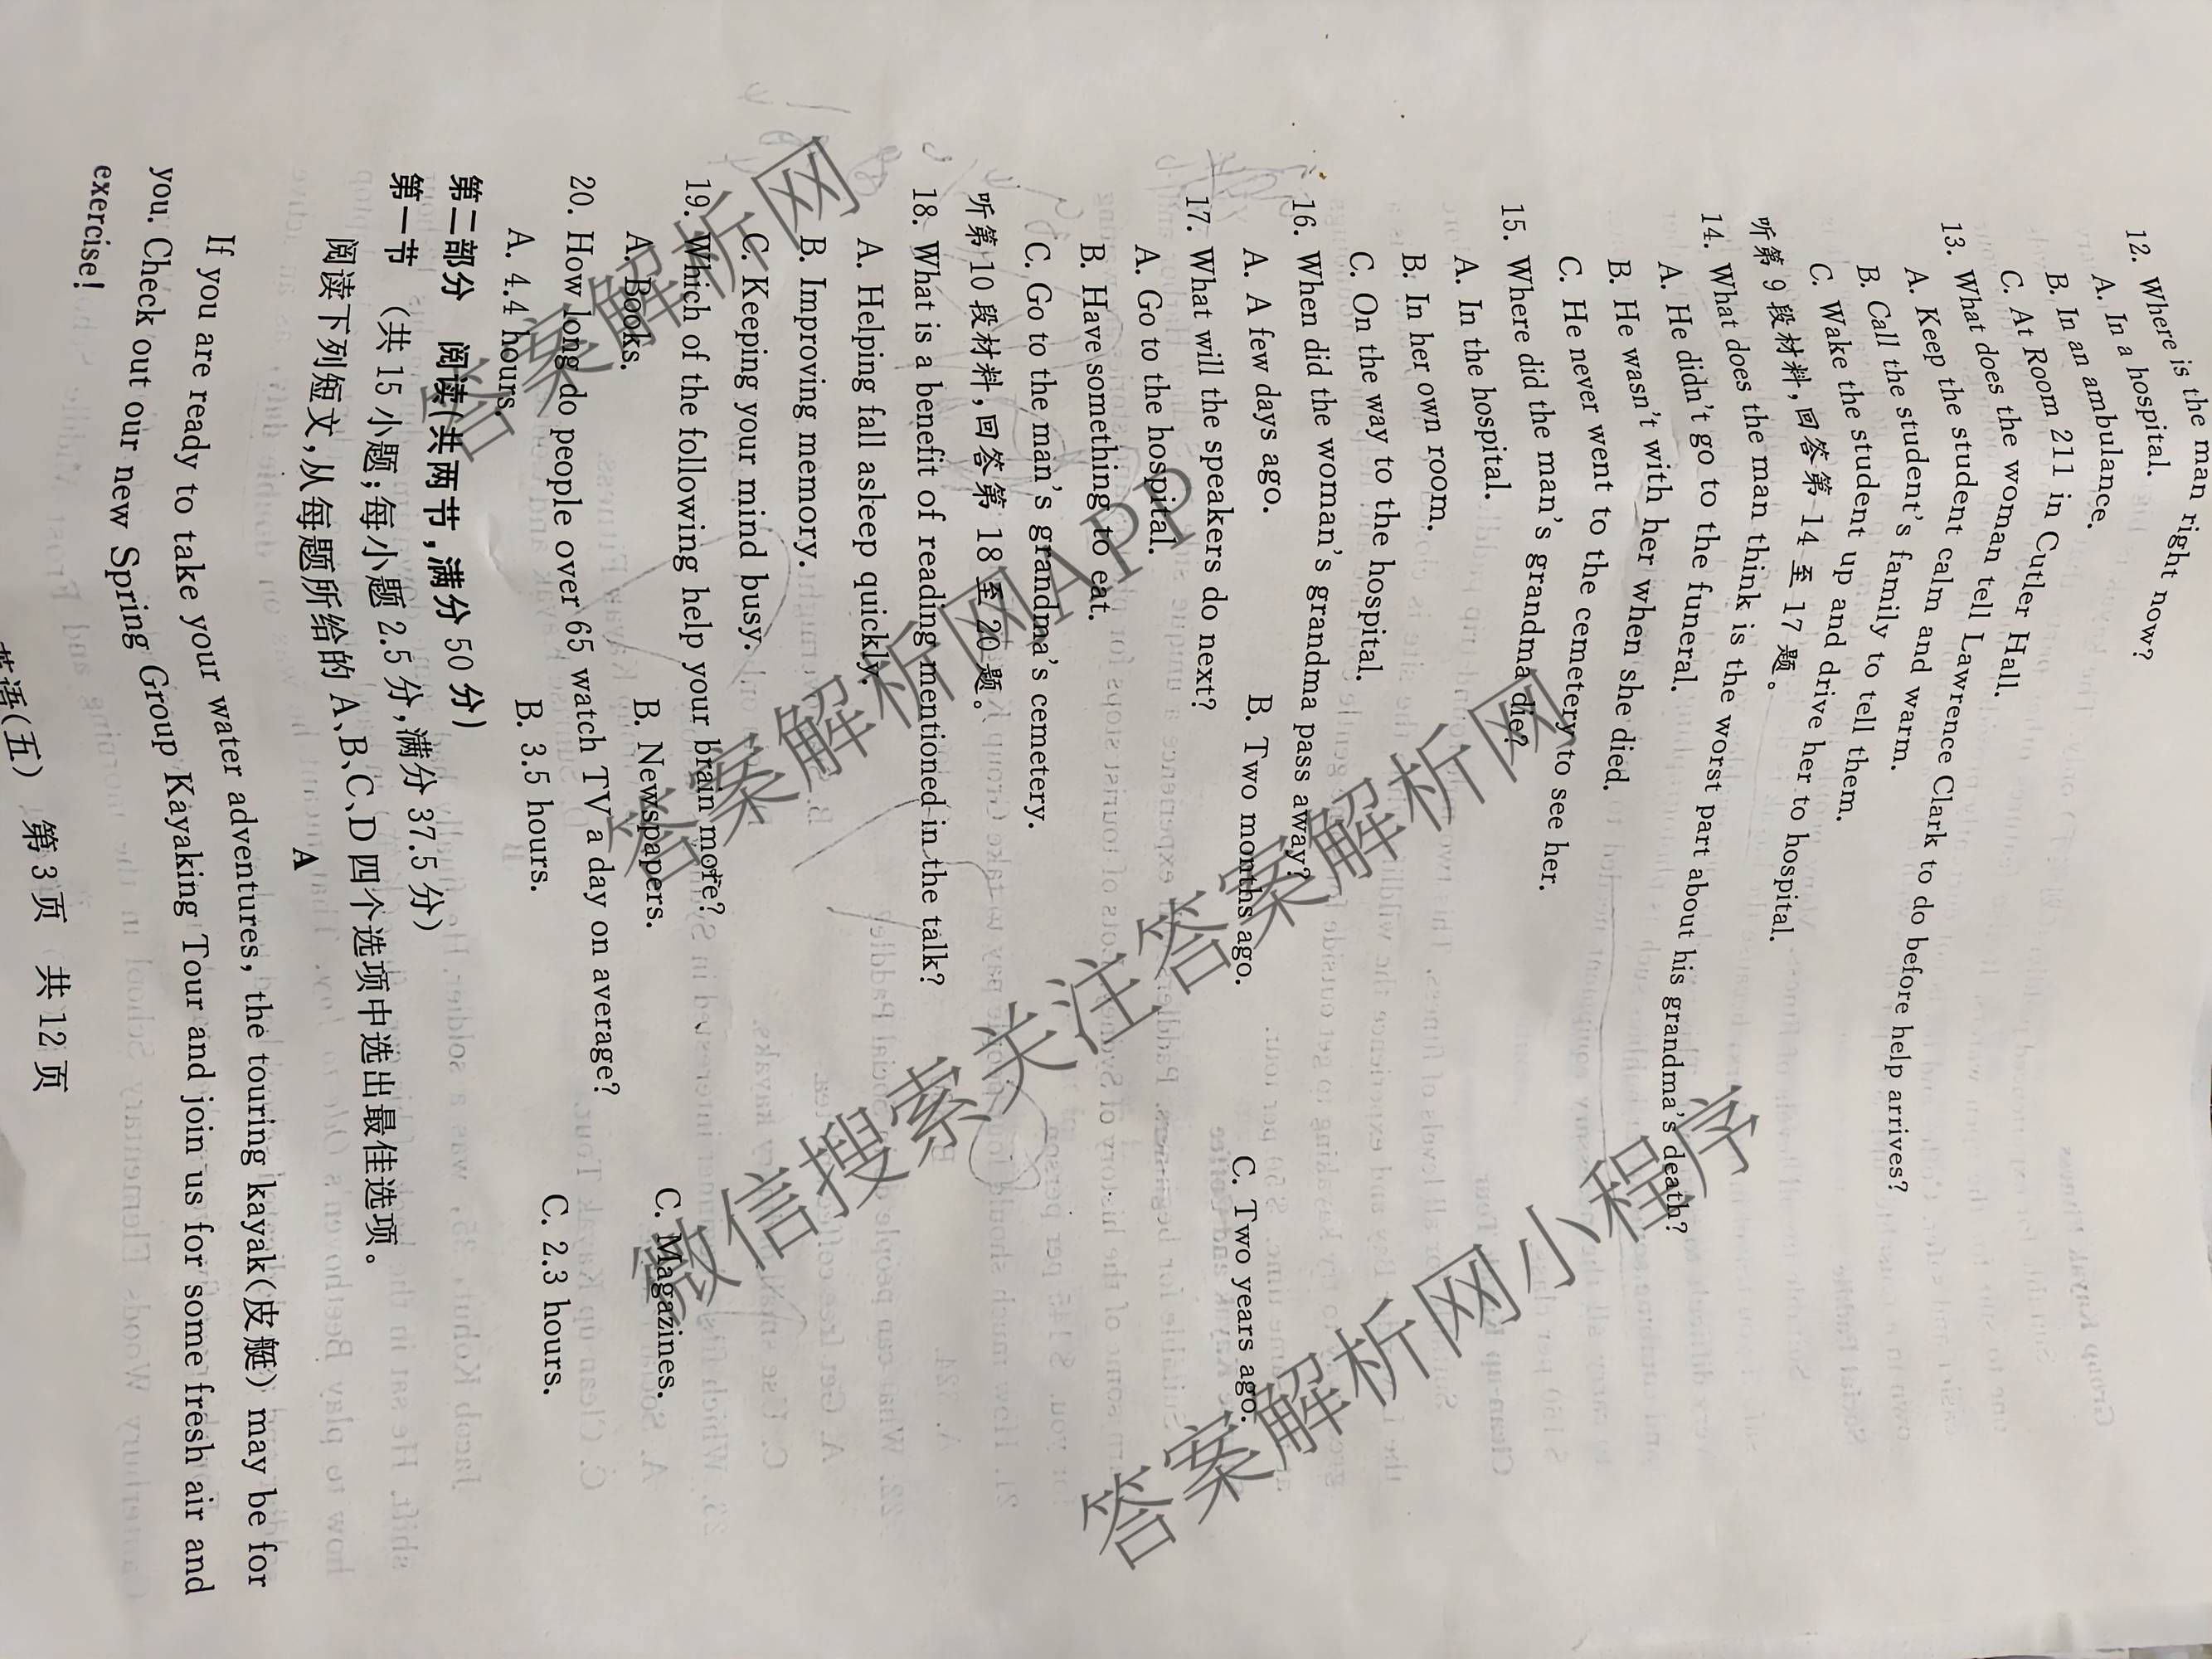 12. Where is the man right now?
A. In a hospital.
B. In an ambulance.
C. At Room 211 in Cutler Hall.
13. What does the woman tell Lawrence Clark to do before help arrives?
A. Keep the student calm and warm.
B. Call the student's family to tell them.
C. Wake the student up and drive her to hospital.
听第 9 段材料,回答第 14 至 17 题。
14. What does the man think is the worst part about his grandma's death?
A. He didn't go to the funeral.
B. He wasn't with her when she died.
C. He never went to the cemetery to see her.
15. Where did the man's grandma die?
A. In the hospital.
B. In her own room.
C. On the way to the hospital.
16. When did the woman's grandma pass away?
A. A few days ago. B. Two months ago. C. Two years ago.
17. What will the speakers do next?
A. Go to the hospital.
B. Have something to eat.
C. Go to the man's grandma's cemetery.
听第 10 段材料,回答第 18 至 20 题。
18. What is a benefit of reading mentioned in the talk?
A. Helping fall asleep quickly.
B. Improving memory.
C. Keeping your mind busy.
19. Which of the following help your brain more?
A. Books. B. Newspapers. C. Magazines.
20. How long do people over 65 watch TV a day on average?
A. 4.4 hours. B. 3.5 hours. C. 2.3 hours.
第二部分 阅读(共两节,满分 50 分)
第一节 (共 15 小题;每小题 2.5 分,满分 37.5 分)
阅读下列短文,从每题所给的 A、B、C、D 四个选项中选出最佳选项。
A
If you are ready to take your water adventures, the touring kayak(皮艇) may be for
you. Check out our new Spring Group Kayaking Tour and join us for some fresh air and
exercise!
英语(五) 第 3 页 共 12 页
答案解析网
答案解析网APP
微信搜索关注答案解析网
答案解析网小程序